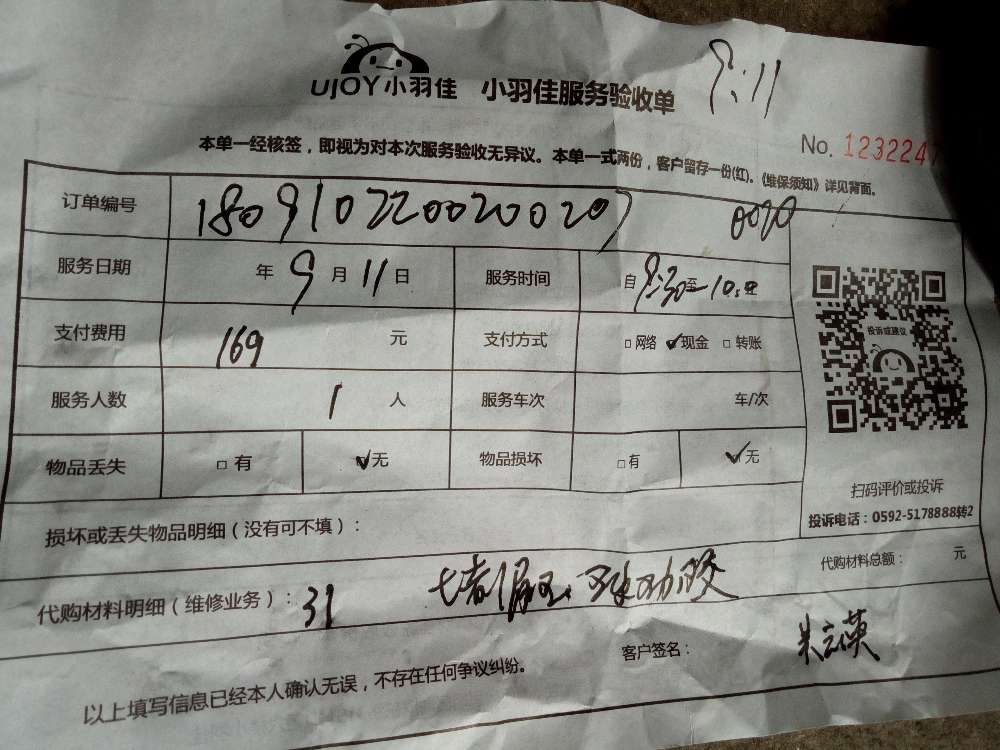 UJOY小羽佳 小羽佳服务验收单 9:11
No. 1232247
本单一经核签，即视为对本次服务验收无异议。本单一式两份，客户留存一份(红)。《维保须知》详见背面。
订单编号 180910220020020 0020
服务日期 年 9 月 11 日 服务时间 自 9:30 至 10:00
支付费用 169 元 支付方式 □ 网络 ✓ 现金 □ 转账
服务人数 1 人 服务车次 车/次
物品丢失 □ 有 ✓ 无 物品损坏 □ 有 ✓ 无
投诉或建议
扫码评价或投诉
投诉电话：0592-5178888转2
损坏或丢失物品明细（没有可不填）：
代购材料总额： 元
代购材料明细（维修业务）： 31
客户签名： 朱云英
以上填写信息已经本人确认无误，不存在任何争议纠纷。